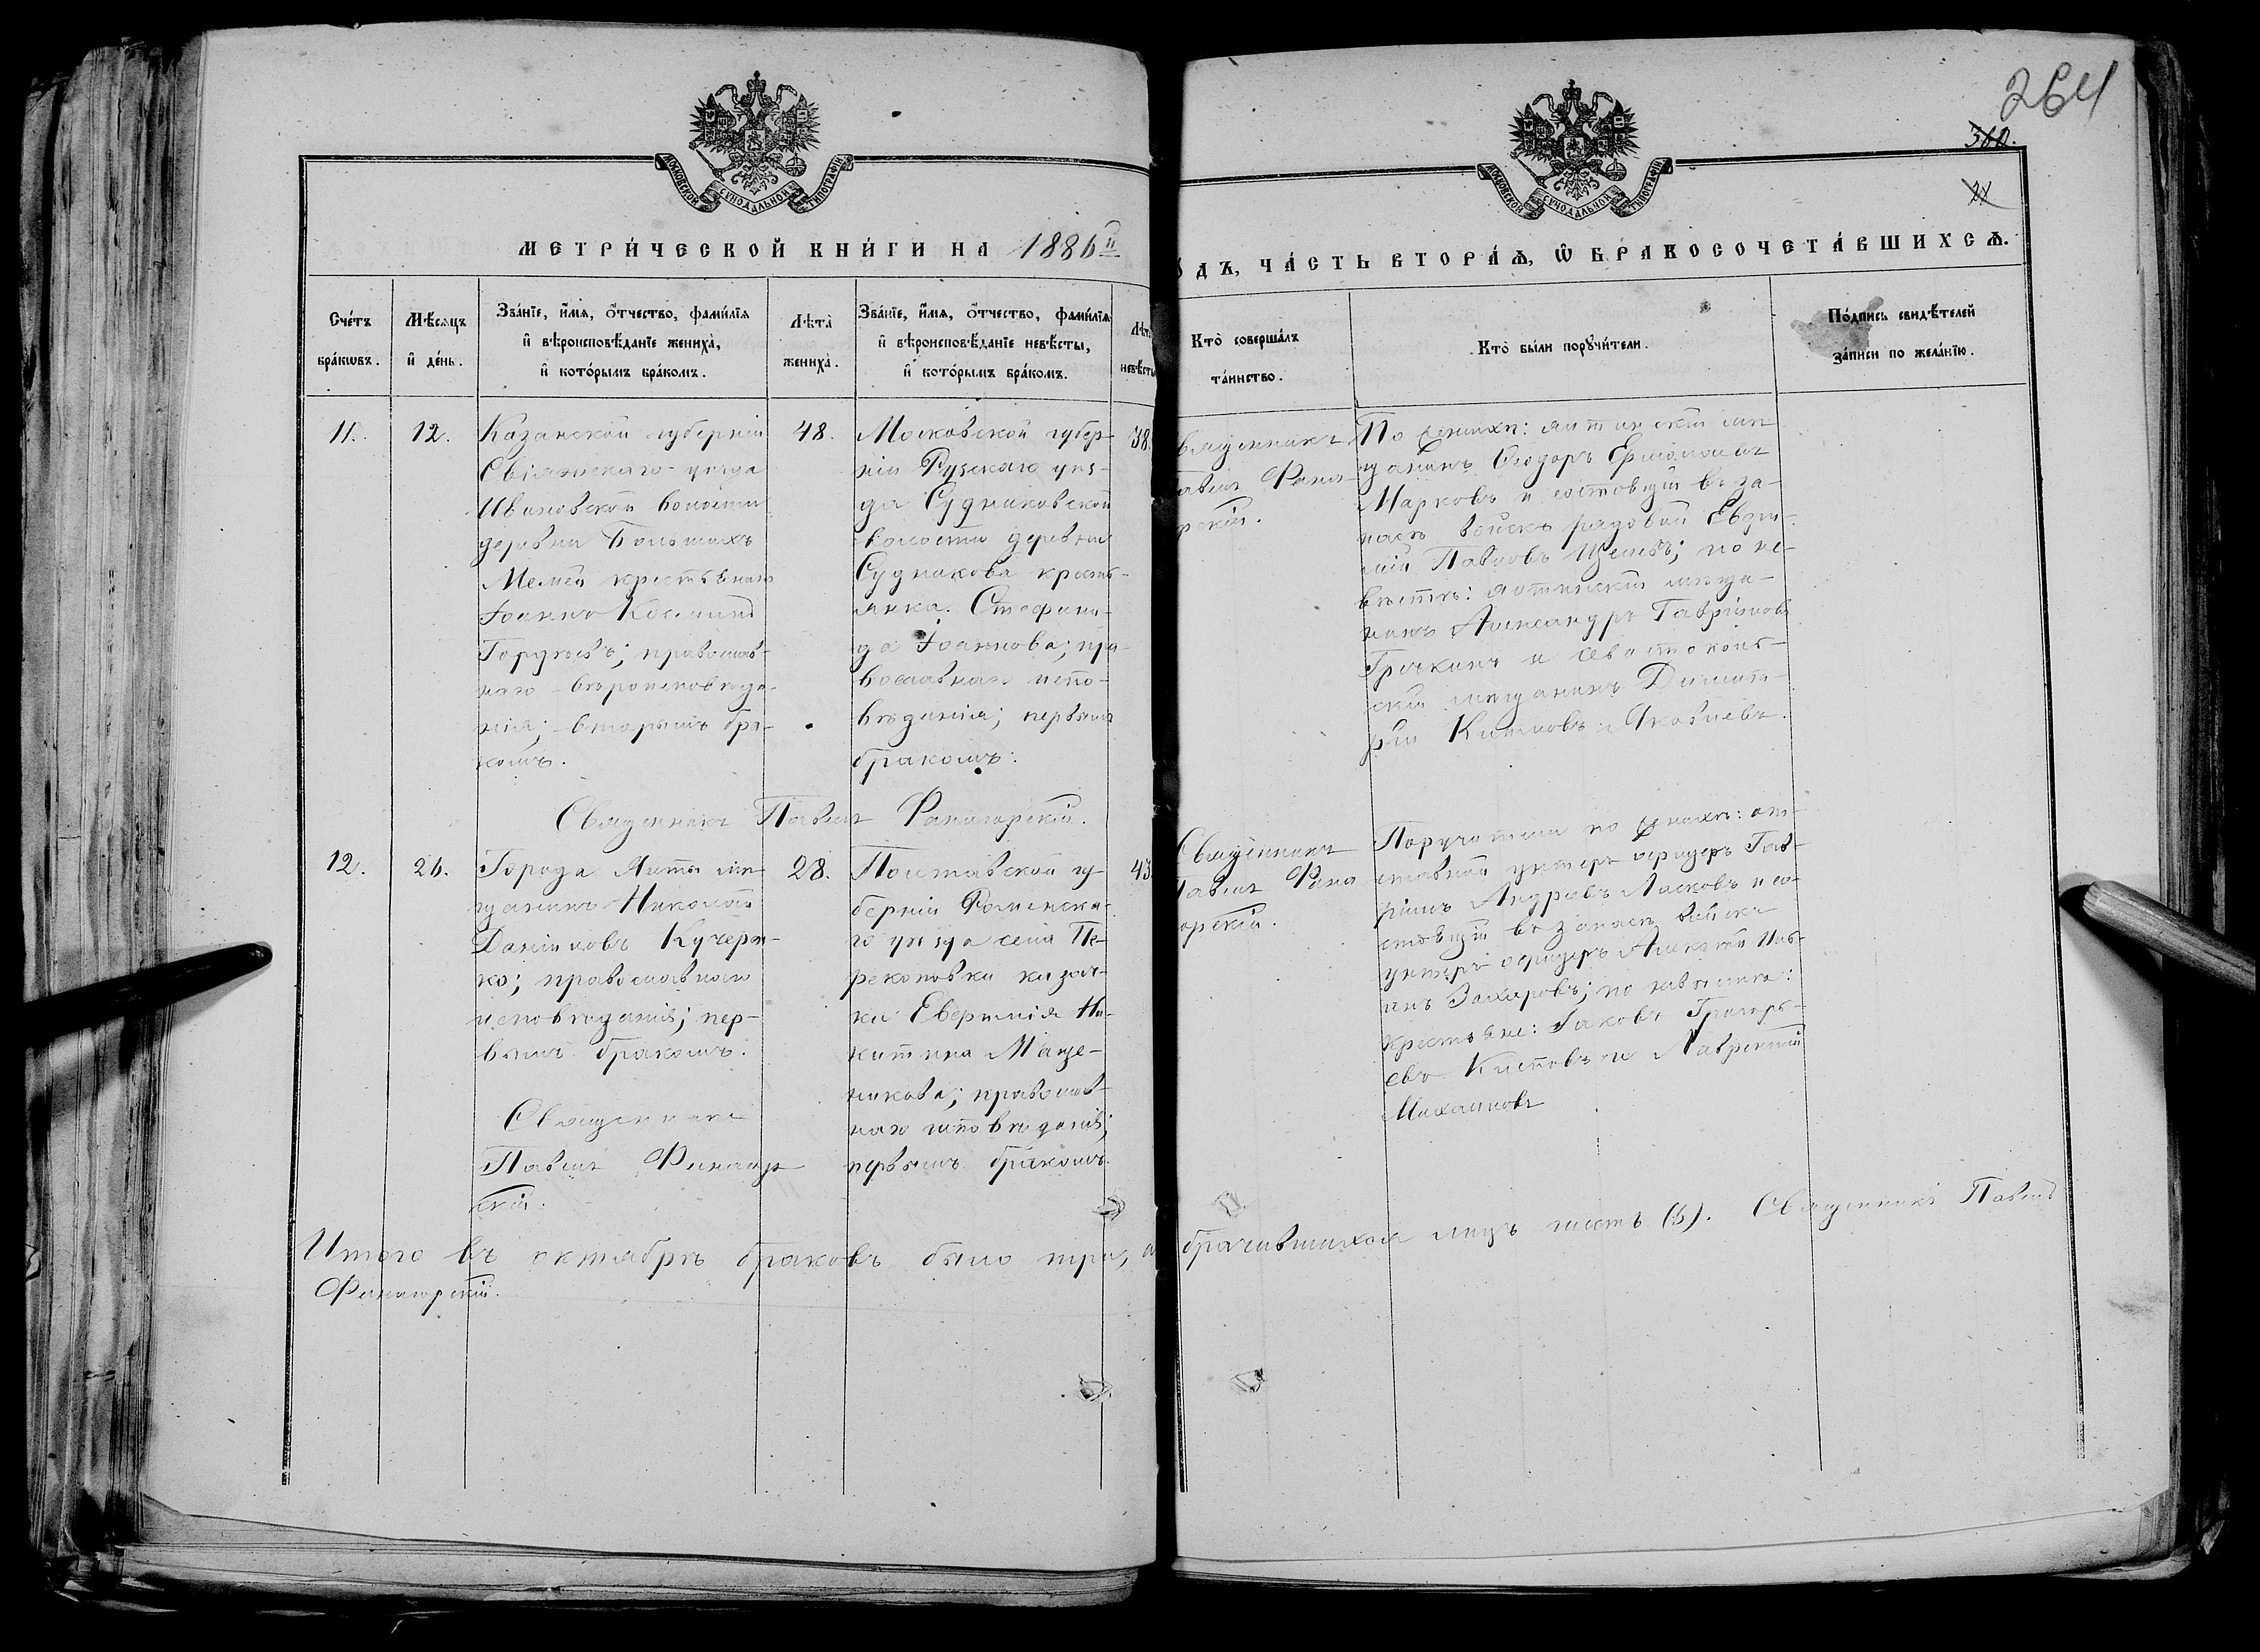 264
310.
11
МОСКОВСКОЙ СУНОДАЛЬНОЙ ТИПОГРАФІИ
МОСКОВСКОЙ СУНОДАЛЬНОЙ ТИПОГРАФІИ
МЕТРИ́ЧЕСКОЙ КНИ́ГИ НА 1886й
О́ДЪ, ЧА́СТЬ ВТОРА́Ѧ, Ѡ БРАКОСОЧЕТА́ВШИХСѦ.
Сче́тъ
бра́кѡвъ.
Мѣ́сѧцъ
и҆ де́нь.
Зва́нїе, и҆́мѧ, ѻ҆́тчество, фами́лїѧ
и҆ вѣроисповѣ́данїе жениха̀,
и҆ кото́рымъ бра́комъ.
Лѣ́та̀
жениха̀.
Зва́нїе, и҆́мѧ, ѻ҆́тчество, фами́лїѧ
и҆ вѣроисповѣ́данїе невѣ́сты,
и҆ кото́рымъ бра́комъ.
Лѣ́т
невѣ́сты
Кто̀ соверша́лъ
та́инство.
Кто̀ бы́ли порꙋчи́тели.
По́дпись свидѣ́телей
за́писи по жела́нїю.
11.
12.
Казанской губерніи
Свіяжскаго уѣзда
Ивановской волости
деревни Большихъ
Мемей крестьянинъ
Іоаннъ Косминъ
Гордѣевъ; православ-
наго вѣроисповѣда-
нія; вторымъ бра-
комъ.
48.
Московской губер-
ніи Рузскаго уѣз-
да Судниковской
волости деревни
Судникова кресть-
янка Стефани-
да Іоаннова; пра-
вославнаго испо-
вѣданія; первымъ
бракомъ.
38.
вященникъ
авелъ Фана-
рскій.
По женихѣ: ялтинскій мѣ-
щанинъ Ѳеодоръ Ермолаевъ
Марковъ и состоящій въ за-
пасѣ войскъ рядовой Евдо-
кій Павловъ; по не-
вѣстѣ: ялтинскій мѣща-
нинъ Александръ Гавриловъ
Гречкинъ и севастополь-
скій мѣщанинъ Димит-
рій Яковлевъ.
Священникъ Павелъ Фанагорскій.
12.
26.
Города Ялты мѣ-
щанинъ Николай
Даниловъ Кучерен-
ко; православнаго
исповѣданія; пер-
вымъ бракомъ.
Священникъ
Павелъ Фанагор-
скій.
28.
Полтавской гу-
берніи Роменска-
го уѣзда села Пе-
рекоповки казач-
ка Евфимія Ни-
китина Маще-
никова; православ-
наго исповѣданія;
первымъ бракомъ.
43
Священникъ
Павелъ Фана
горскій.
Поручители по женихѣ: от-
ставной унтеръ офицеръ Гав-
ріилъ Андреевъ Ласковъ и со-
стоящій въ запасѣ войскъ
унтеръ офицеръ
Захаровъ; по невѣстѣ:
крестьяне: Іаковъ Григорь-
евъ и Лаврентій
Михаиловъ
Итого въ октябрѣ браковъ было три, а брачившихся лицъ шесть (6). Священникъ Павелъ
Фанагорскій.